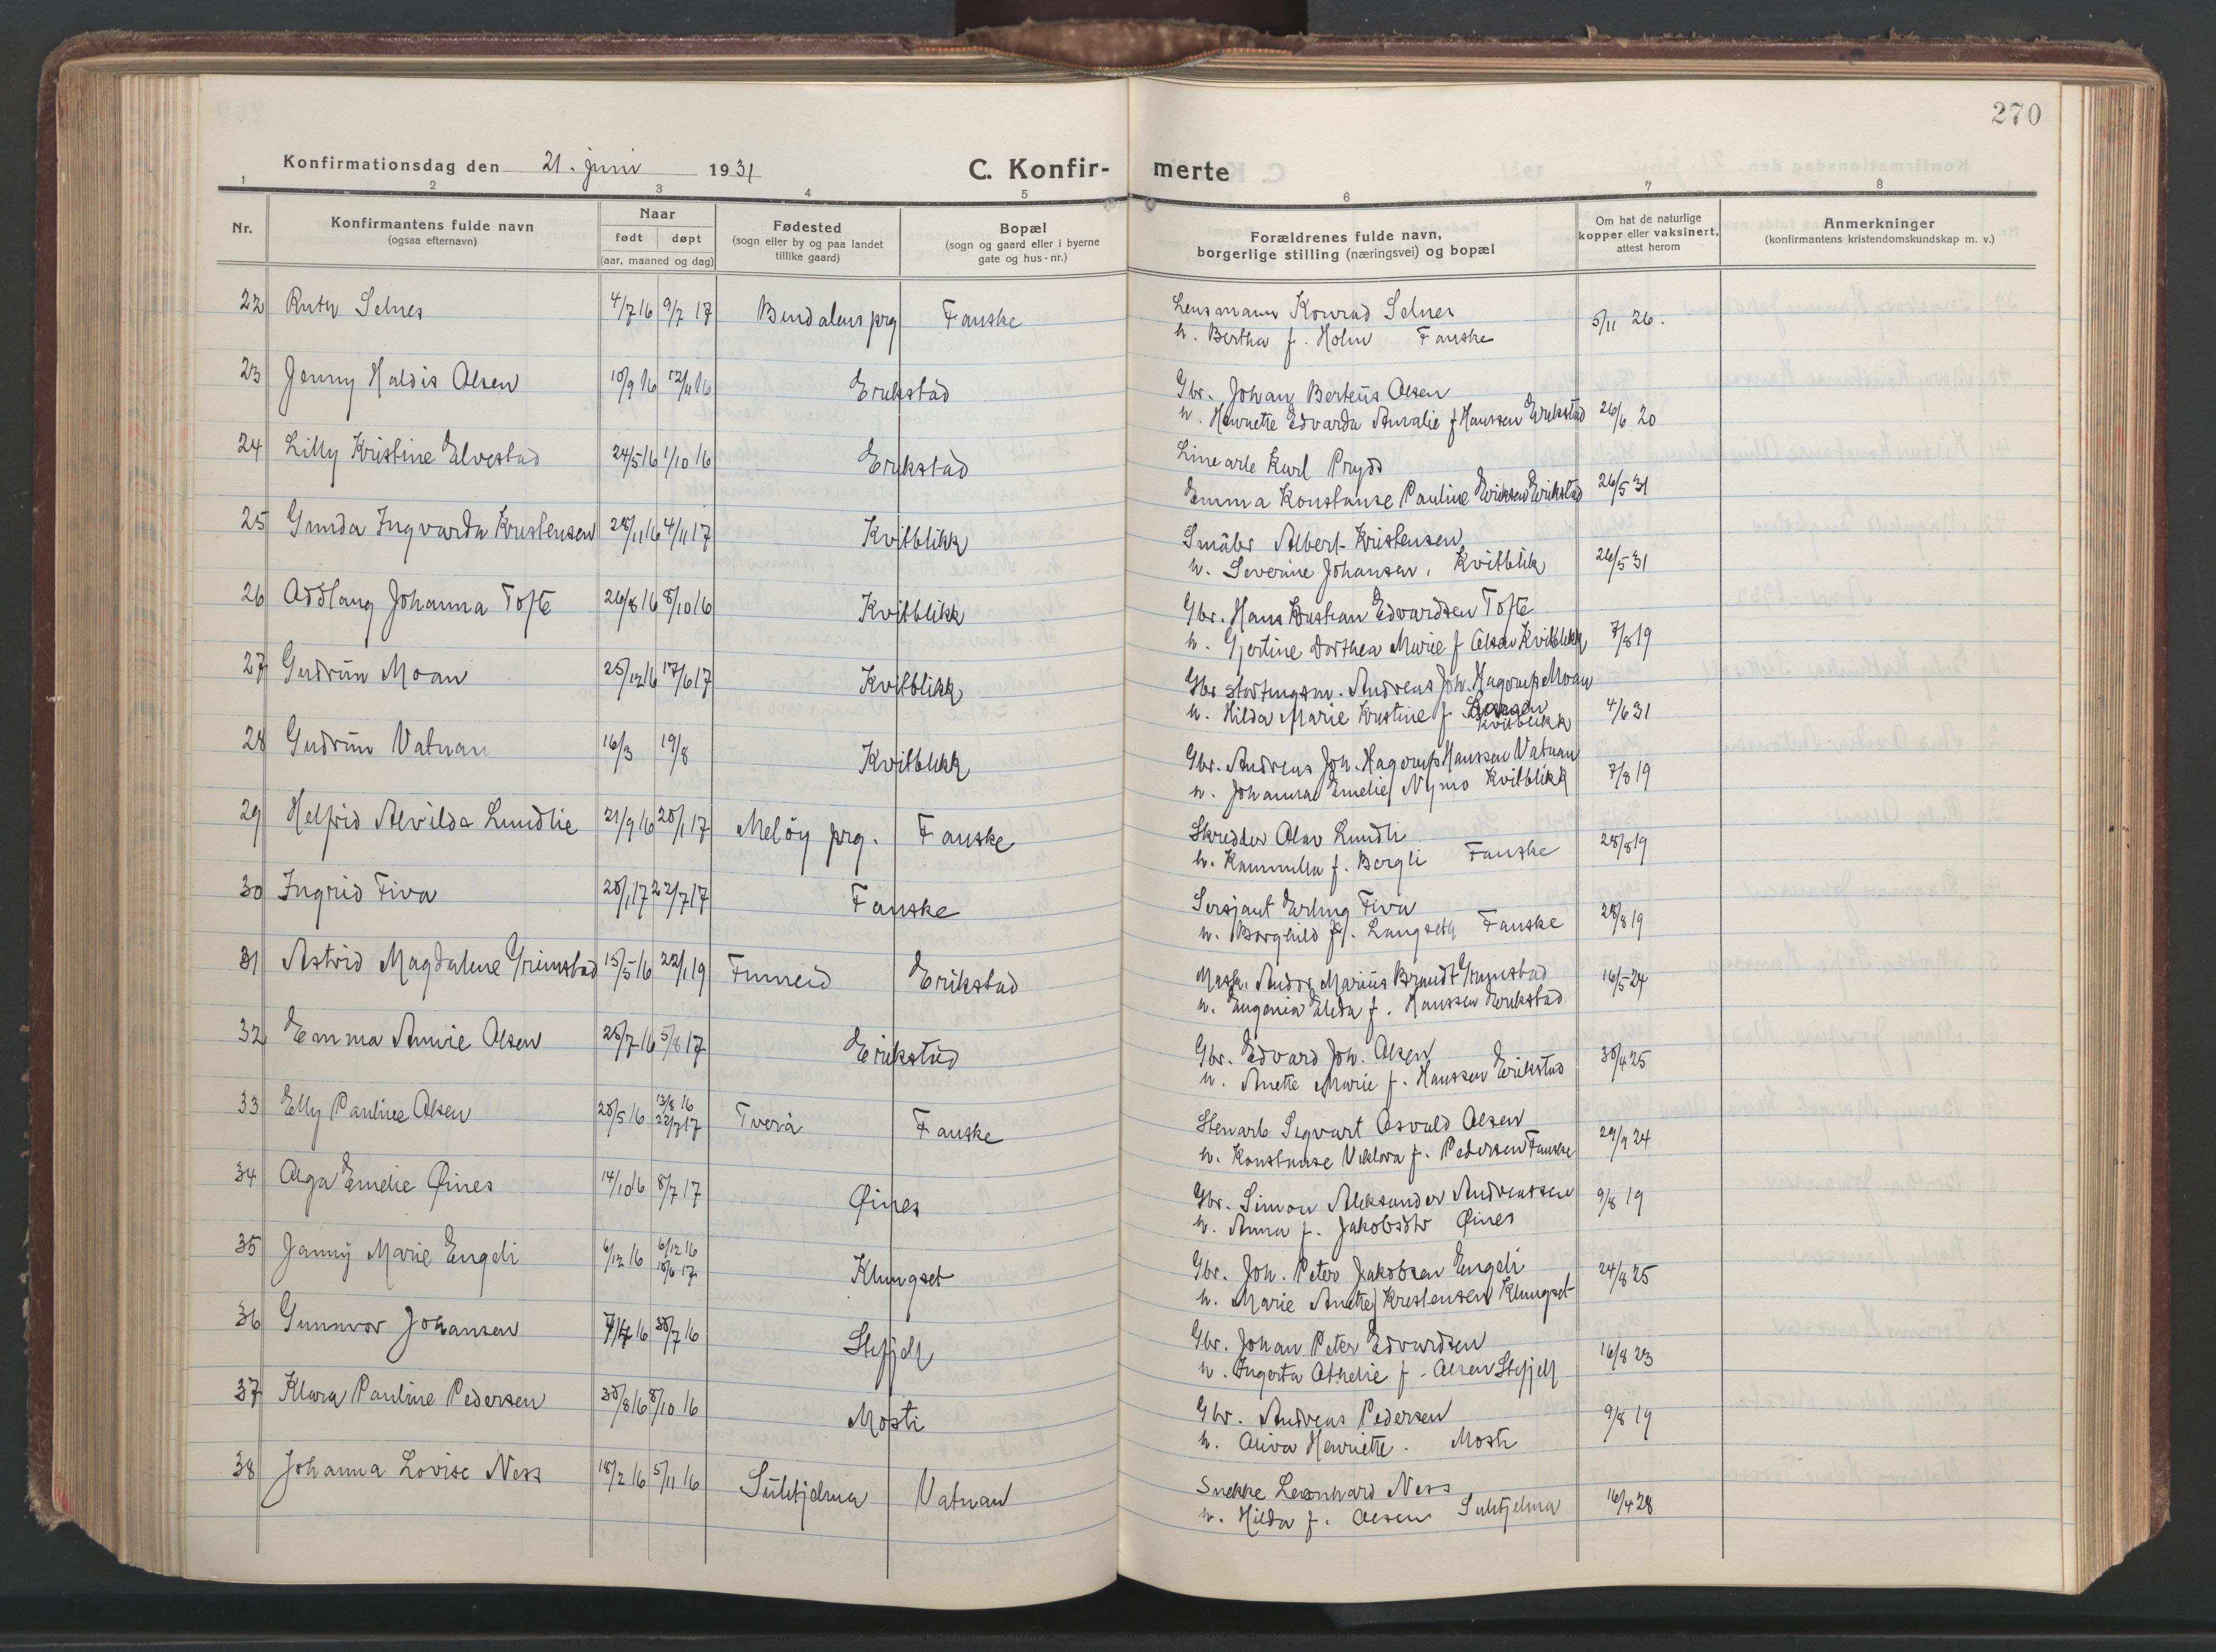 270
Konfirmationsdag den 21. juni 1931 C. Konfir- merte
1 2 3 4 5 6 7 8
Nr. Konfirmantens fulde navn (ogsaa efternavn) Naar født døpt (aar, maaned og dag) Fødested (sogn eller by og paa landet tillike gaard) Bopæl (sogn og gaard eller i byerne gate og hus-nr.) Forældrenes fulde navn, borgerlige stilling (næringsvei) og bopæl Om hat de naturlige kopper eller vaksinert, attest herom Anmerkninger (konfirmantens kristendomskundskap m. v.)
22 Ruth Selnes 4/7 16 9/7 17 Bindalens prg Fauske Lensmann Konrad Selnes 5/11 26.
h. Bertha f. Holm Fauske
23 Jenny Haldis Olsen 10/9 16 12/11 16 Erikstad Gbr. Johan Berteus Olsen
h. Henriette Edvarda Amalie f Hanssen Erikstad 26/6 20
24 Lilly Kristine Elvestad 24/5 16 1/10 16 Erikstad Linearb Karl Prydz
Emma Konstanse Pauline Eriksen Erikstad 26/5 31
25 Gunda Ingvarda Kristensen 28/11 16 4/11 17 Kvitblikk Småbr Albert Kristensen
h. Severine Johansen. Kvitblik 26/5 31
26 Oddlaug Johanna Tofte 26/8 16 8/10 16 Kvitblikk Gbr. Hans Kristian Edvardsen Tofte
h. Gjertine Dorthea Marie f Olsen Kvitblikk 7/8 19
27 Gudrun Moan 25/12 16 17/6 17 Kvitblikk Gbr stortingsm. Andreas Joh. Hagerup Moan
h. Hilda Marie Kristine f. Larsen Kvitblikk 4/6 31
28 Gudrun Vatnan 16/3 19/8 Kvitblikk Gbr. Andreas Joh. Hagerup Hanssen Vatnan
h. Johanna Emelie f Nymo Kvitblikk 7/8 19
29 Helfrid Alvilda Lundlie 21/9 16 28/1 17 Meløy prg. Fauske Skredder Olav Lundli
h. Kammilla f. Bergli Fauske 28/8 19
30 Ingrid Fiva 28/1 17 22/7 17 Fauske Sersjant Erling Fiva
h. Borghild f. Langseth Fauske 28/8 19
31 Astrid Magdalene Grimstad 15/5 16 22/1 19 Finneid Erikstad Mask. Andr. Marius Brandt Grimstad 16/5 24
h. Eugenia Elida f. Hanssen Erikstad
32 Emma Annie Olsen 28/7 16 5/8 17 Erikstad Gbr. Edvard Joh. Olsen
h. Anette Marie f. Hanssen Erikstad 30/4 25
33 Elly Pauline Olsen 28/5 16 13/8 16 22/7 17 Tverå Fauske Stenarb Sigvart Osvald Olsen
h. Konstanse Viktora f. Pedersen Fauske 29/9 24
34 Olga Emelie Øines 14/10 16 8/7 17 Øines Gbr. Simon Aleksander Andreassen 9/8 19
h. Anna f. Jakobsdtr Øines
35 Janny Marie Engeli 6/12 16 6/12 16 10/6 17 Klungset Gbr. Joh. Peter Jakobsen Engeli 24/8 25
h. Marie Anette f Kristensen Klungset
36 Gunnvor Johansen 7/4 16 30/7 16 Stifjell Gbr. Johan Peter Edvardsen
h. Ingerta Othelie f. Olsen Stifjell 16/8 23
37 Klara Pauline Pedersen 30/8 16 8/10 16 Mosti Gbr. Andreas Pedersen 9/8 19
h. Oliva Henriette. Mosti
38 Johanna Lovise Ness 18/2 16 5/11 16 Sulitjelma Vatnan Snekke Leonhard Ness
h. Hilda f. Olsen Sulitjelma 16/4 28